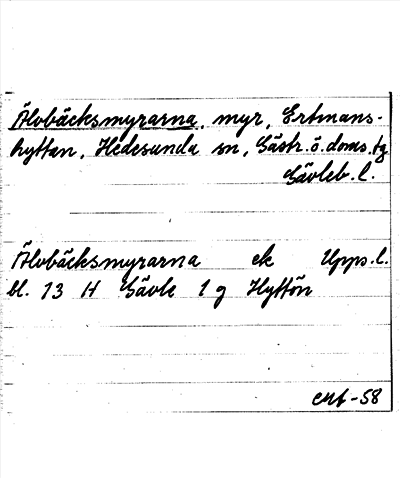 Älvbäcksmyrarna, myr, Ertmans-
hyttan, Hedesunda sn, Gästr. ö. doms. tg
Gävleb. l.
Älvbäcksmyrarna ek Upps. l.
bl. 13 H Gävle 1 g Hyttön
-58